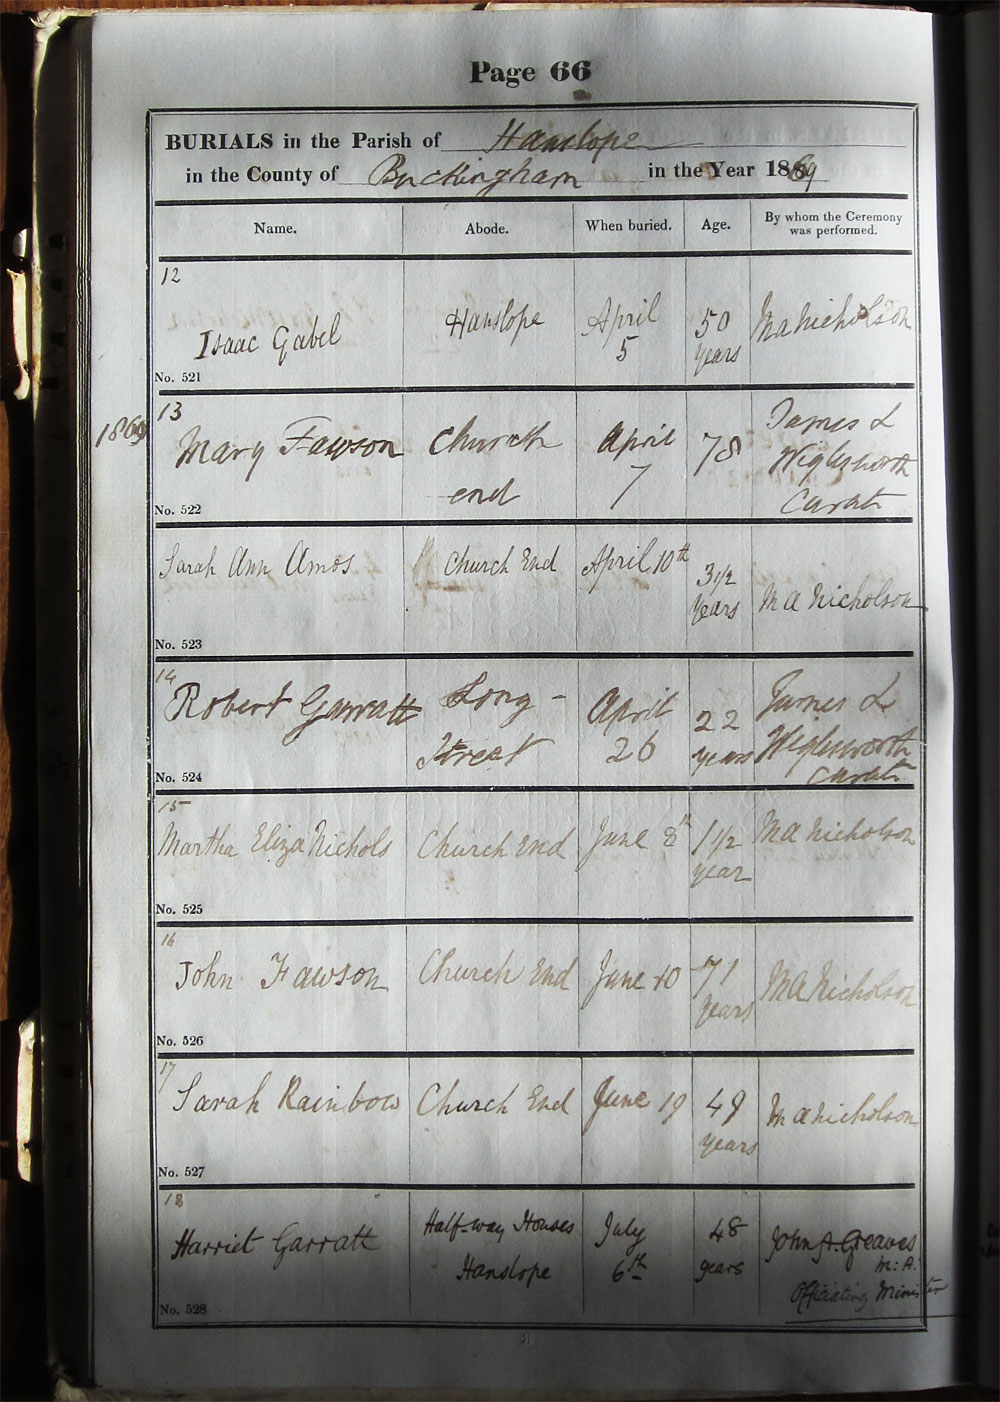 Page 66
BURIALS in the Parish of Hanslope
in the County of Buckingham in the Year 1869
Name. Abode. When buried. Age. By whom the Ceremony was performed.
12
Isaac Gabel Hanslope April 5 50 years M A Nicholson
No. 521
1869
13
Mary Fawson Church end April 7 78 James L Wiglesworth Curate
No. 522
Sarah Ann Amos Church End April 10th 3 1/2 years M A Nicholson
No. 523
14
Robert Garratt Long-Street April 26 22 years James L Wiglesworth Curate
No. 524
15
Martha Eliza Nichols Church End June 8th 1 1/2 year M A Nicholson
No. 525
16
John Fawson Church End June 10 71 years M A Nicholson
No. 526
17
Sarah Rainbow Church End June 19 49 years M A Nicholson
No. 527
18
Harriet Garratt Half-way Houses Hanslope July 6th 48 years John A. Greaves M: A: Officiating Minister
No. 528